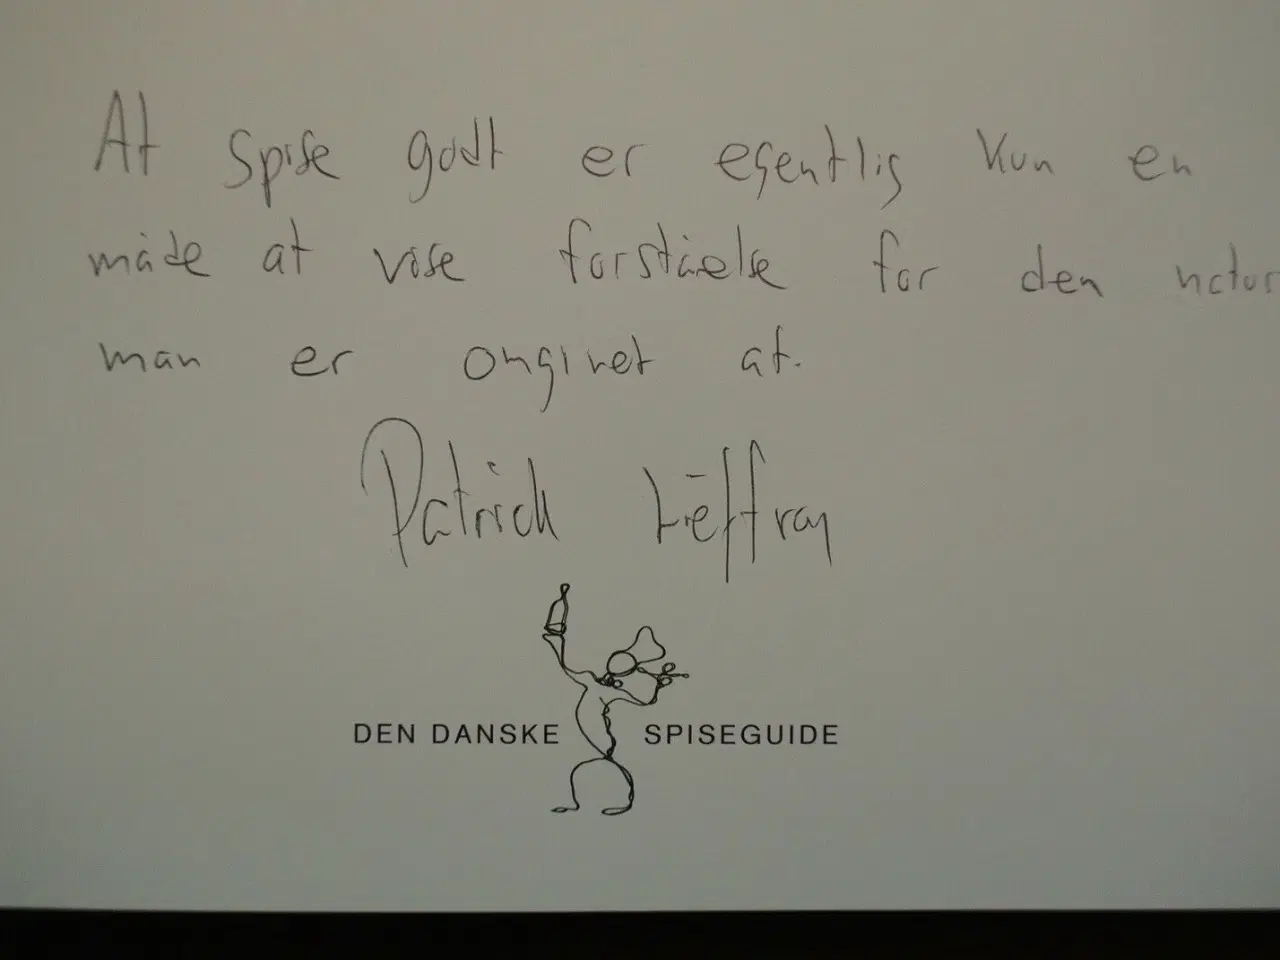 At spise godt er egentlig kun en
måde at vise forståelse for den natur
man er omgivet af.
Patrick
DEN DANSKE SPISEGUIDE